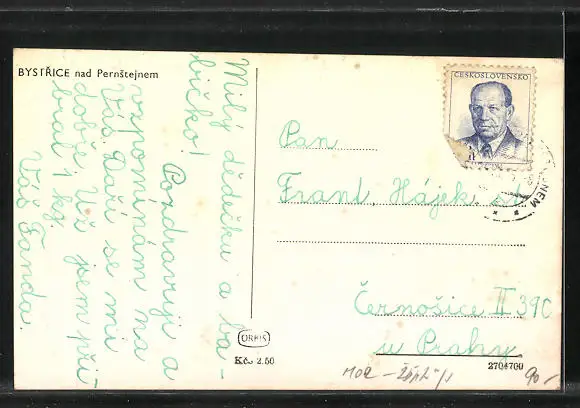 BYSTŘICE nad Pernštejnem
Milý dědečku a ba-
bičko!
Pozdravuji a
vzpomínám na
Vás. Daří se mi
dobře. Už jsem při-
bral 1 kg.
Váš Fanda.
ČESKOSLOVENSKO
NEM
Pan
Frant. Hájek st.
Černošice II 390
u Prahy
ORBIS
Kčs 2.50
2704700
90,-